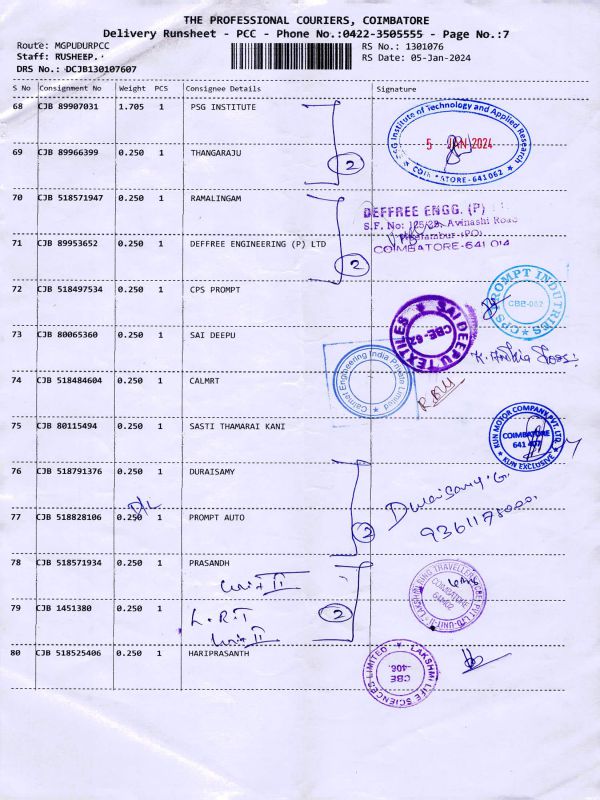 THE PROFESSIONAL COURIERS, COIMBATORE
Delivery Runsheet - PCC - Phone No.:0422-3505555 - Page No.:7
Route: MGPUDURPCC
Staff: RUSHEEP.
DRS No.: DCJB130107607
RS No.: 1301076
RS Date: 05-Jan-2024
S No Consignment No Weight PCS Consignee Details Signature
68 CJB 89907031 1.705 1 PSG INSTITUTE
PSG Institute of Technology and Applied Research
5 JAN 2024
COIMBATORE-641062
69 CJB 89966399 0.250 1 THANGARAJU
2
70 CJB 518571947 0.250 1 RAMALINGAM
DEFFREE ENGG. (P)
S.F. No: 125/2B, Avinashi Road
COIMBATORE-641 014
71 CJB 89953652 0.250 1 DEFFREE ENGINEERING (P) LTD
2
72 CJB 518497534 0.250 1 CPS PROMPT
CPS PROMPT INDUTRIES
CBE-062
73 CJB 80065360 0.250 1 SAI DEEPU
SAI DEEPU TEXTILES
CBE-62
74 CJB 518484604 0.250 1 CALMRT
Calmet Engineering India Private Limited
75 CJB 80115494 0.250 1 SASTI THAMARAI KANI
KUN MOTOR COMPANY PVT. LTD.
COIMBATORE
641 407
KUN EXCLUSIVE
76 CJB 518791376 0.250 1 DURAISAMY
Duraisamy.G.
D/L
77 CJB 518828106 0.250 1 PROMPT AUTO
2
78 CJB 518571934 0.250 1 PRASANDH
Unit II
COIMBATORE
79 CJB 1451380 0.250 1
L.R.T
Unit II
2
80 CJB 518525406 0.250 1 HARIPRASANTH
LAKSHMI LIFE SCIENCES LIMITED
CBE
-406.